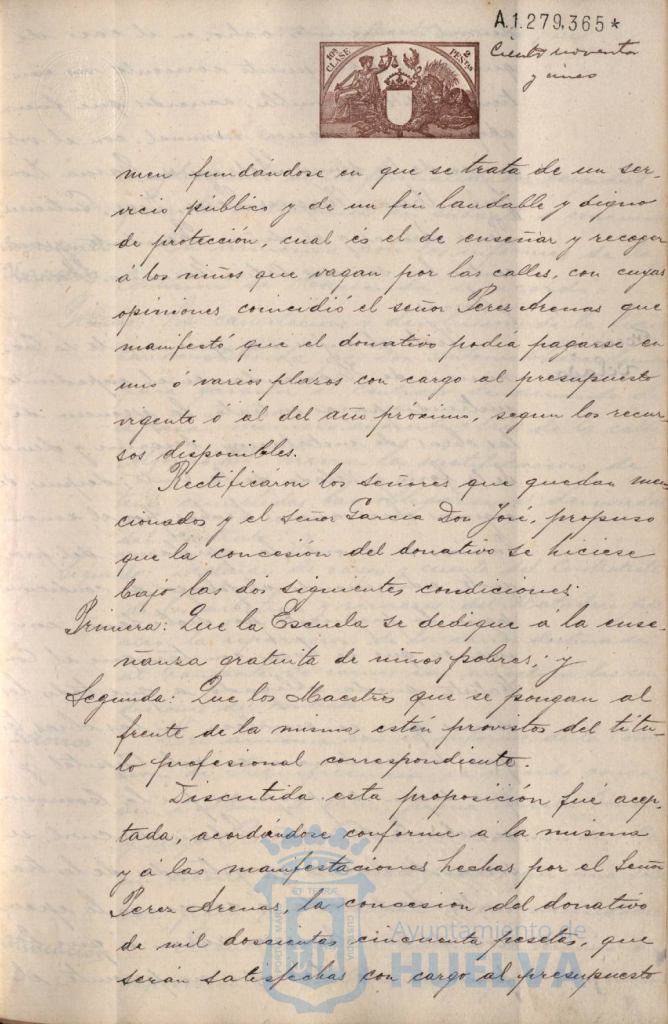 A.1.279,365*
Ciento noventa
y uno
10ª CLASE
2 PESETAS
men fundándose en que se trata de un ser-
vicio público y de un fin laudable y digno
de protección, cual és el de enseñar y recoger
á los niños que vagan por las calles, con cuyas
opiniones coincidió el señor Perez Arenas que
manifestó que el donativo podia pagarse en
uno ó varios plazos con cargo al presupuesto
vigente ó al del año próximo, segun los recur-
sos disponibles.
Rectificaron los señores que quedan men-
cionados y el señor Garcia Don José, propuso
que la concesión del donativo se hiciese
bajo las dos siguientes condiciones:
Primera: Que la Escuela se dedique á la ense-
ñanza gratuita de niños pobres; y
Segunda: Que los Maestros que se pongan al
frente de la misma estén provistos del títu-
lo profesional correspondiente.
Discutida esta proposición fué acep-
tada, acordándose conforme á la misma
y á las manifestaciones hechas por el Señor
Perez Arenas, la concesión del donativo
de mil doscientas cincuenta pesetas, que
serán satisfechas con cargo al presupuesto
Ayuntamiento de
HUELVA